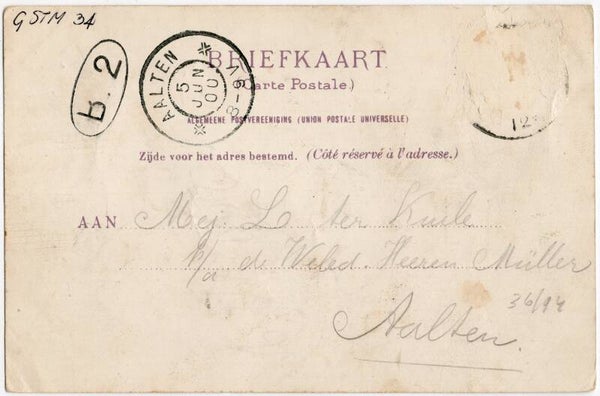 GSTM 34
b.2
AALTEN
5 JUN 00
8-9V
BRIEFKAART
(Carte Postale.)
12
ALGEMEENE POSTVEREENIGING (UNION POSTALE UNIVERSELLE)
Zijde voor het adres bestemd. (Côté réservé à l'adresse.)
AAN Mej. L. ter Kuile
p/a de Weled. Heeren Müller
36/94
Aalten.